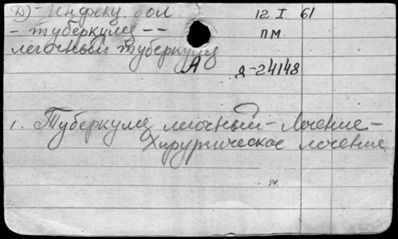 Д) - Инфекц бол. 12.I.61
- туберкулез -- ПМ
легочный туберкулез
А д-24148
1. Туберкулез легочный - Лечение -
Хирургическое лечение